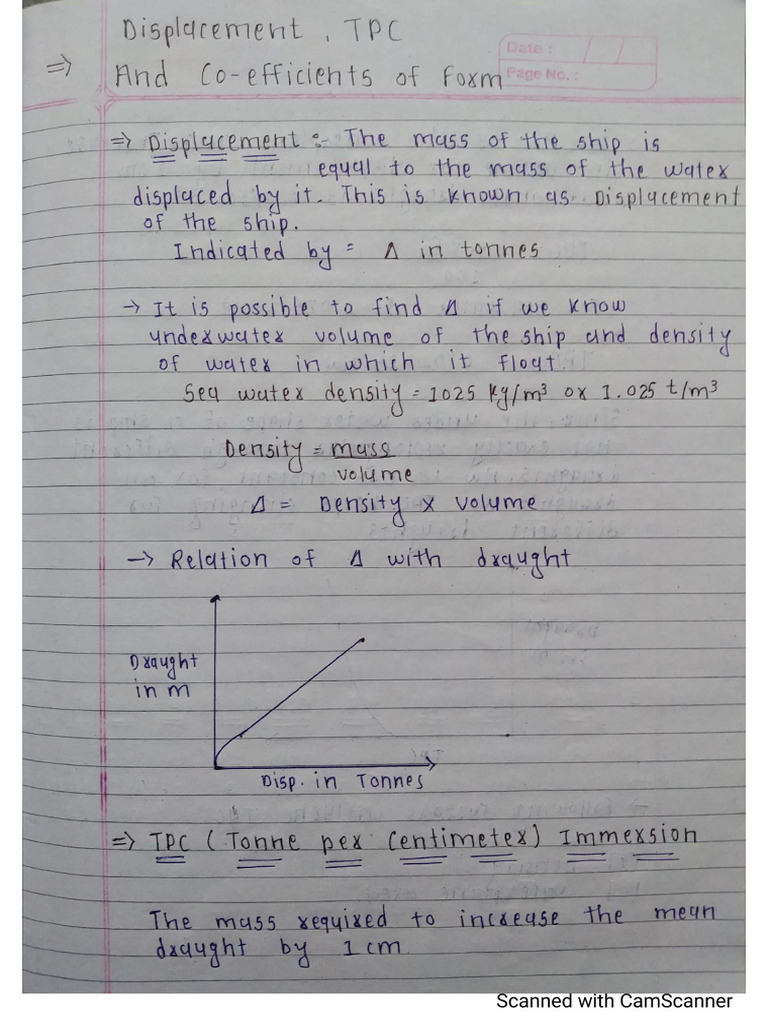 Displacement, TPC
⇒ And Co-efficients of Form
Date :
Page No. :
⇒ Displacement :- The mass of the ship is
equal to the mass of the water
displaced by it. This is known as Displacement
of the ship.
Indicated by = Δ in tonnes
→ It is possible to find Δ if we know
underwater volume of the ship and density
of water in which it float.
Sea water density = 1025 kg/m³ or 1.025 t/m³
Density = mass
volume
Δ = Density x volume
→ Relation of Δ with draught
Draught
in m
Disp. in Tonnes
⇒ TPC (Tonne per Centimeter) Immersion
The mass required to increase the mean
draught by 1 cm
Scanned with CamScanner